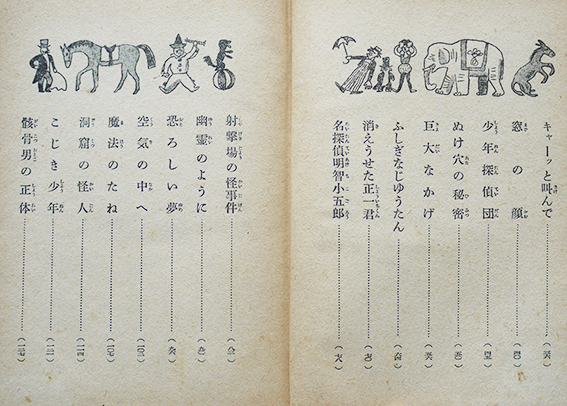 キャーッと叫んで
窓の顔
少年探偵団
ぬけ穴の秘密
巨大なかげ
ふしぎなじゆうたん
消えうせた正一君
名探偵明智小五郎
射撃場の怪事件
幽霊のように
恐ろしい夢
空気の中へ
魔法のたね
洞窟の怪人
こじき少年
骸骨男の正体